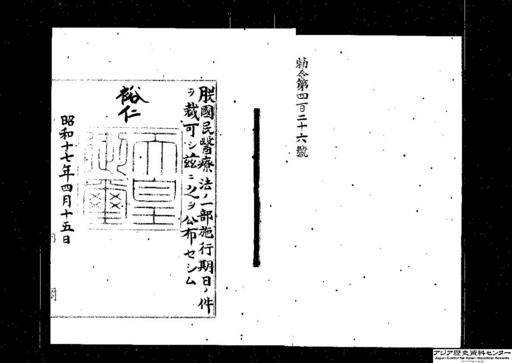 勅令第四百二十六號
朕國民醫療法ノ一部施行期日ノ件
ヲ裁可シ茲ニ之ヲ公布セシム
裕仁
天皇
御璽
昭和十七年四月十五日
アジア歴史資料センター
Japan Center for Asian Historical Records